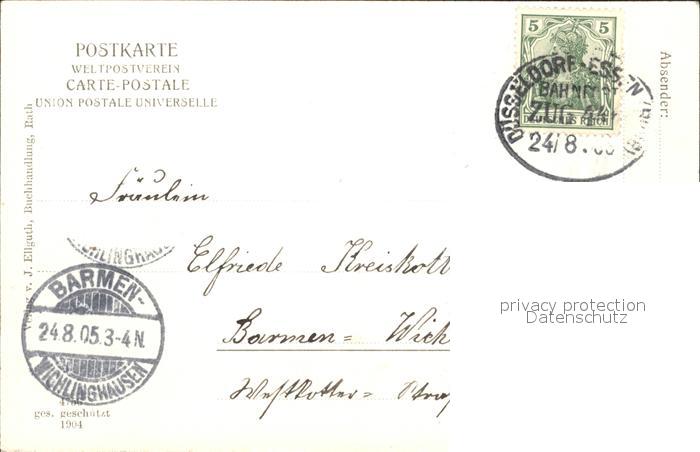 POSTKARTE
WELTPOSTVEREIN
CARTE-POSTALE
UNION POSTALE UNIVERSELLE
5 5
DEUTSCHES REICH
DÜSSELDORF-ESSEN
BAHNPOST
ZUG
24/8
Absender:
Verlag v. J. Ellguth, Buchhandlung, Rath
Fräulein
WICHLINGHAUSEN
Elfriede Kreiskott
BARMEN-
24.8.05.3-4N.
WICHLINGHAUSEN
Barmen= Wich
Westkotter= Straß
ges. geschützt
1904
privacy protection
Datenschutz